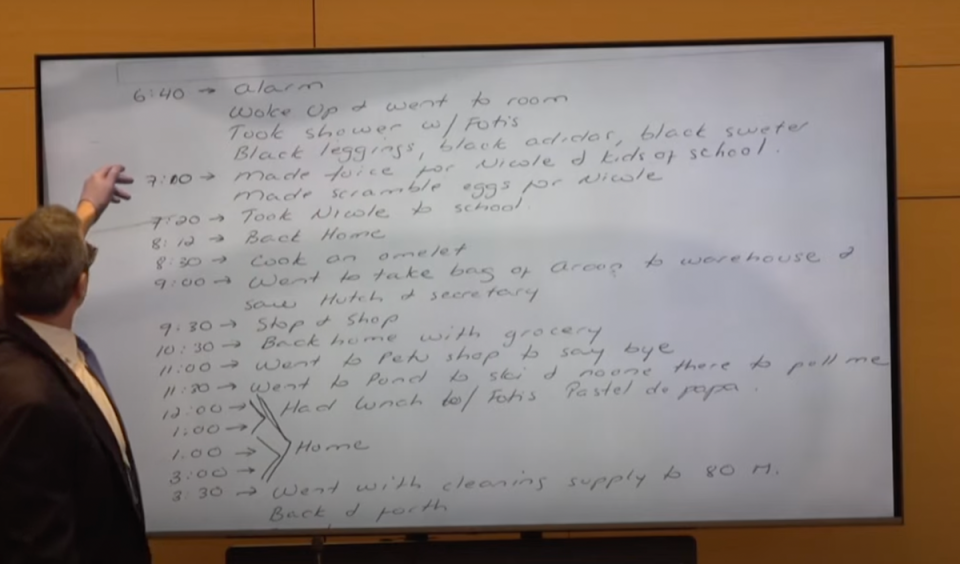 6:40 → alarm
Woke up & went to room
Took shower w/ Fotis
Black leggings, black adidas, black sweter
7:00 → Made juice for Nicole & kids of school.
Made scramble eggs for Nicole
7:20 → Took Nicole to school.
8:12 → Back Home
8:30 → Cook an omelet
9:00 → Went to take bag of to warehouse &
saw Hutch & secretary
9:30 → Stop & Shop
10:30 → Back home with grocery
11:00 → Went to Petu shop to say bye
11:30 → Went to Pond to ski & noone there to pull me
12:00 → Had lunch w/ Fotis Pastel de papa.
1:00 →
1.00 → Home
3:00 →
3:30 → Went with cleaning supply to 80 M.
Back & forth